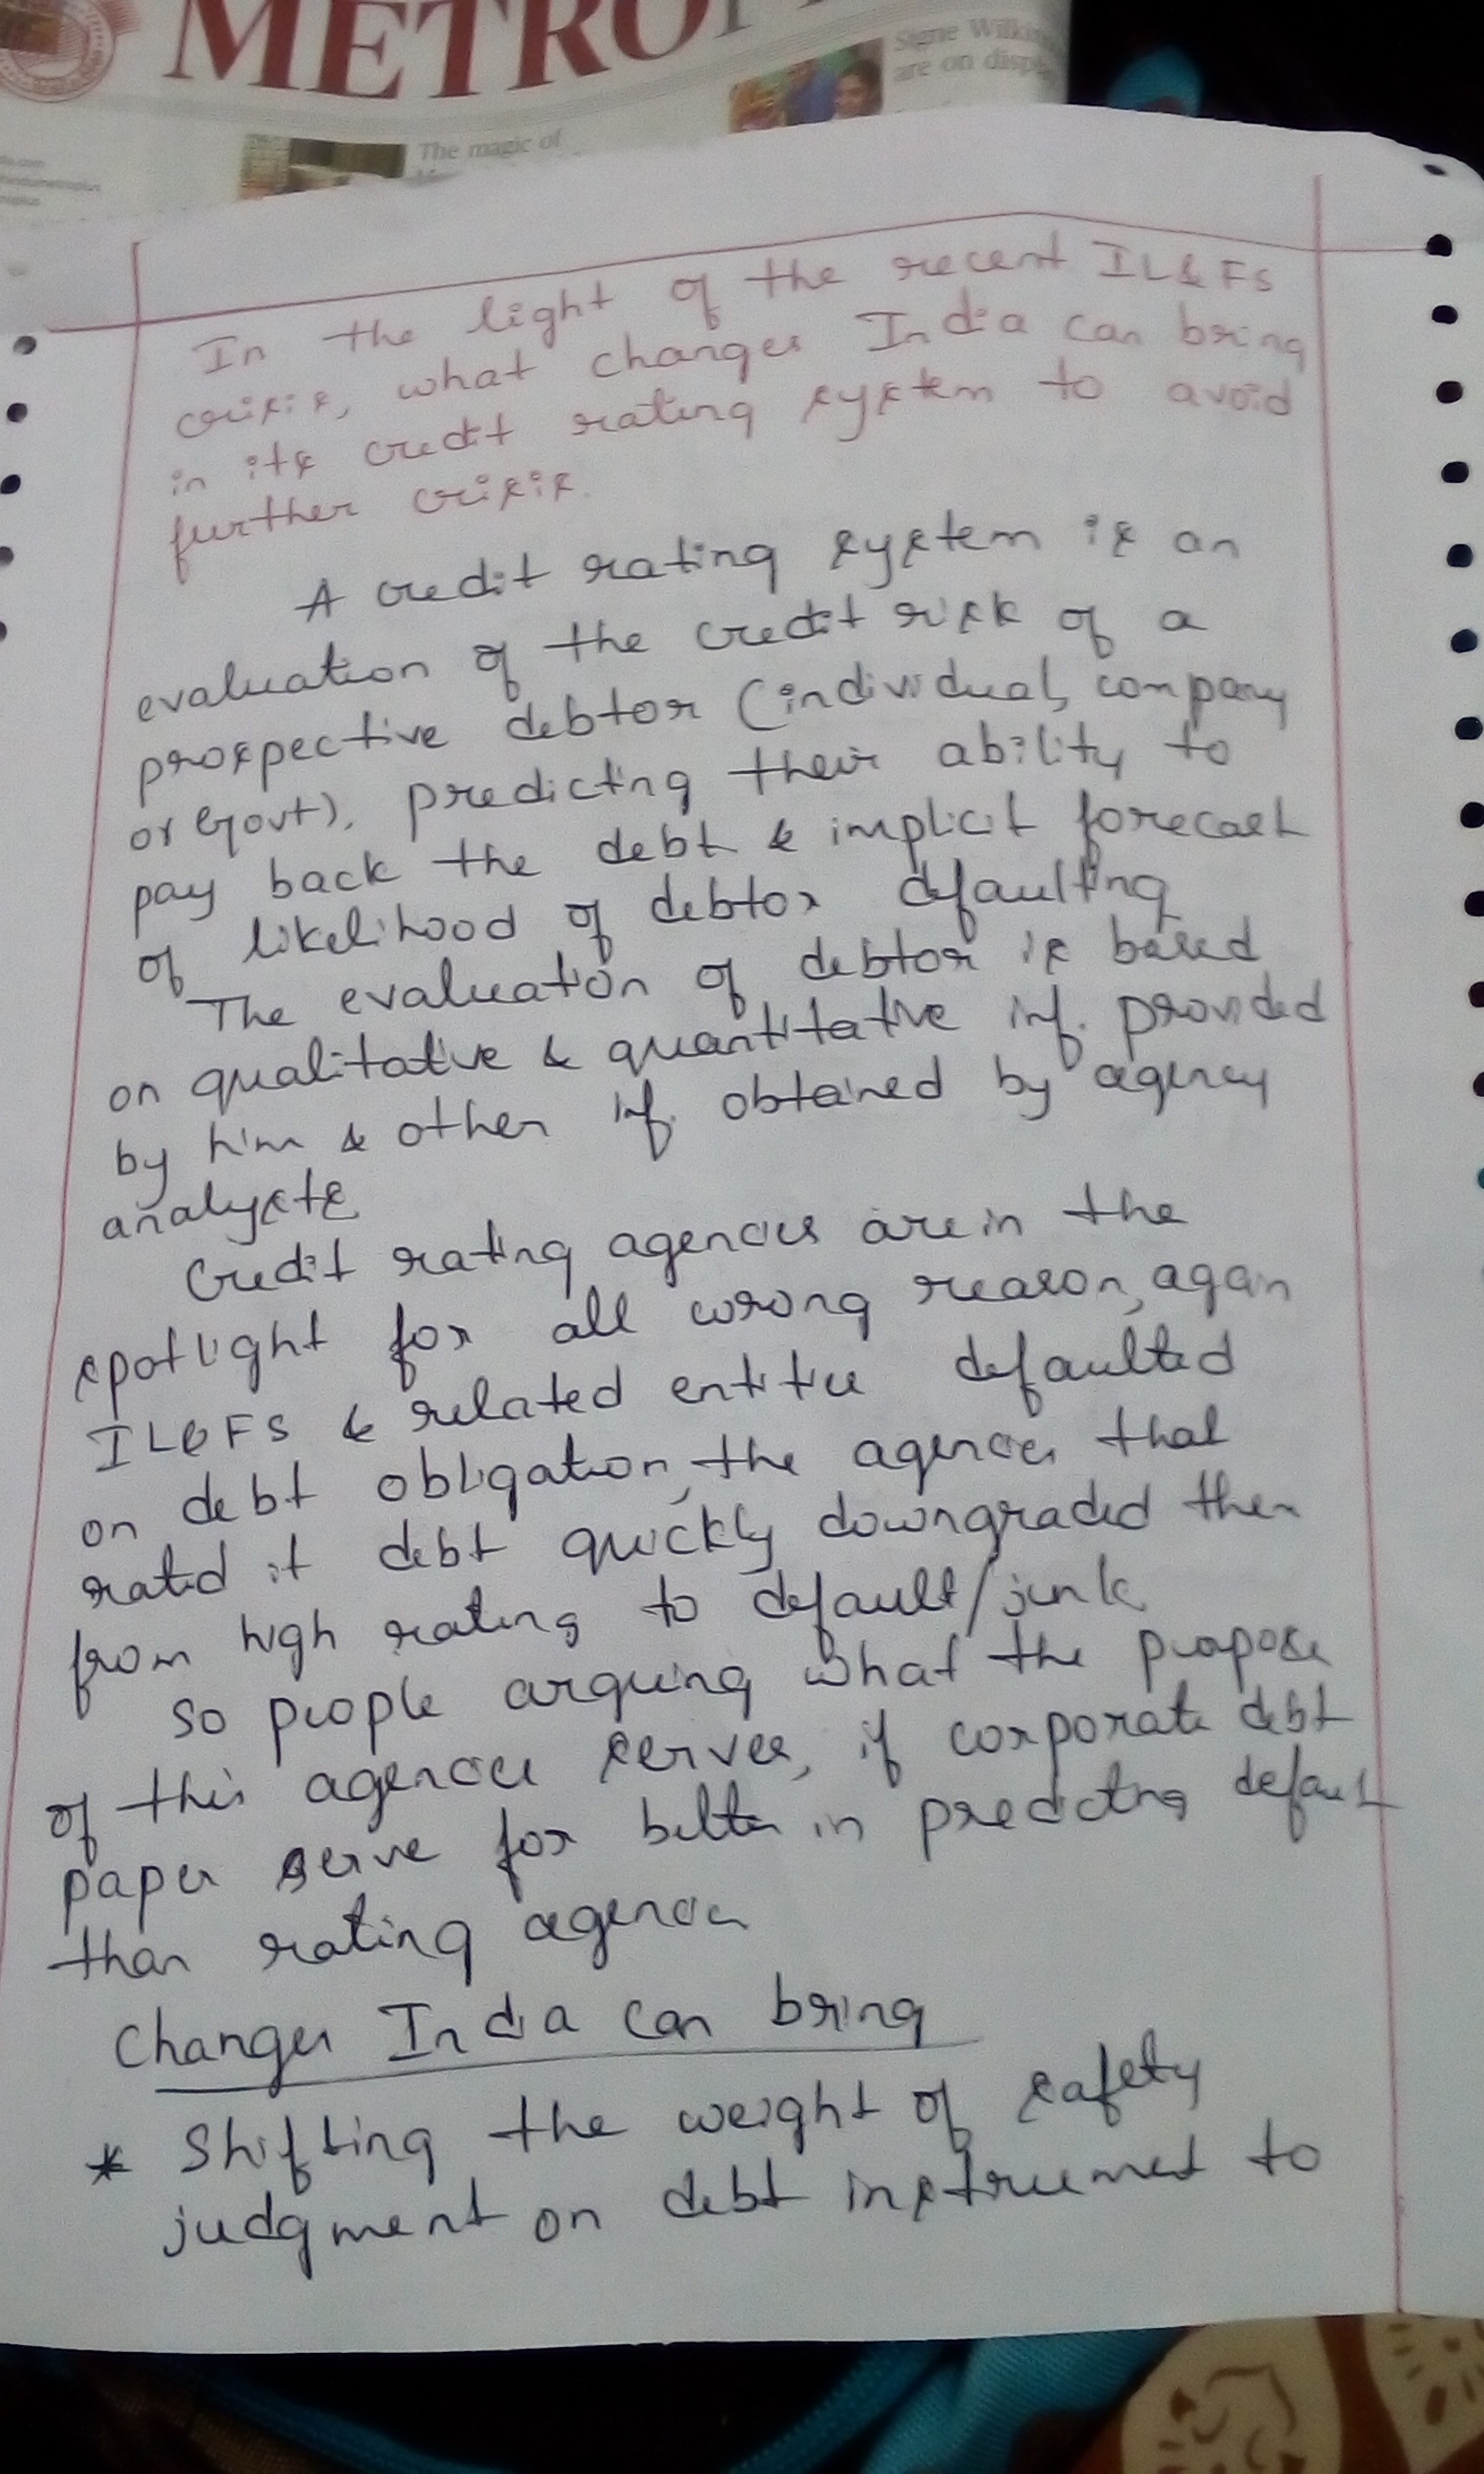 METRO
Signe Wilk
are on disp
The magic of
In the light of the recent IL&FS
crisis, what changes India can bring
in its credit rating system to avoid
further crisis.
A credit rating system is an
evaluation of the credit risk of a
prospective debtor (individual, company
or Govt), predicting their ability to
pay back the debt & implicit forecast
of likelihood of debtor defaulting
The evaluation of debtor is based
on qualitative & quantitative inf. provided
by him & other inf. obtained by agency
analysts
Credit rating agencies are in the
spotlight for all wrong reason, again
IL&FS & related entities defaulted
on debt obligation, the agencies that
rated it debt quickly downgraded then
from high rating to default/junk
So people arguing what the propose
of this agencies serves, if corporate debt
paper serve for better in predicting default
than rating agencies
Changes India can bring
* Shifting the weight of safety
judgment on debt instrument to